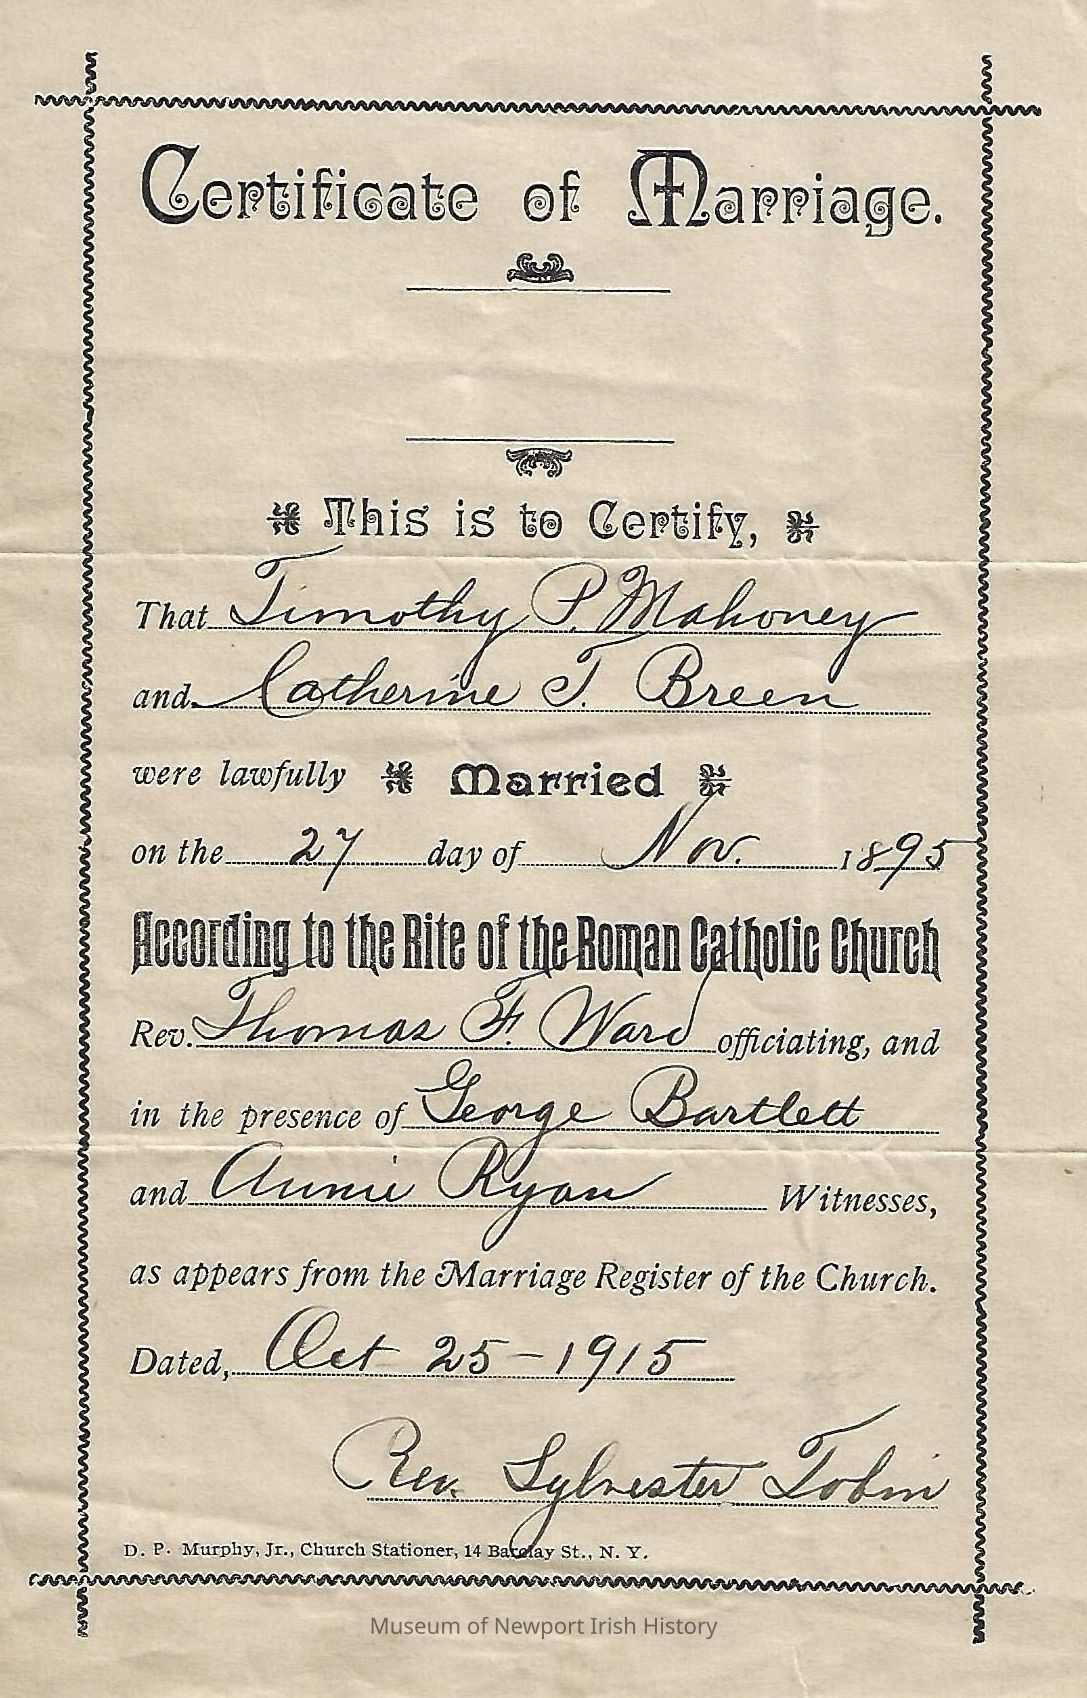 Certificate of Marriage.
This is to Certify,
That Timothy P. Mahoney
and Catherine T. Breen
were lawfully Married
on the 27 day of Nov. 1895
According to the Rite of the Roman Catholic Church
Rev. Thomas F. Ward officiating, and
in the presence of George Bartlett
and Annie Ryan Witnesses,
as appears from the Marriage Register of the Church.
Dated, Oct 25-1915
Rev. Sylvester Tobin
D. P. Murphy, Jr., Church Stationer, 14 Barclay St., N. Y.
Museum of Newport Irish History